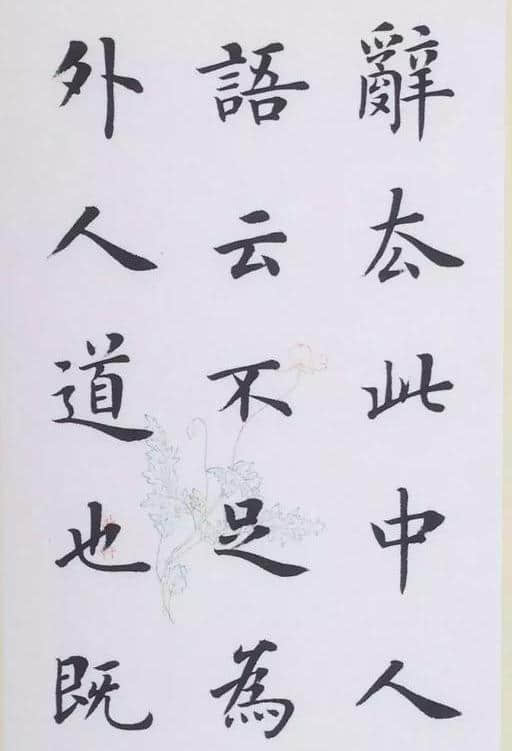 辭厺此中人
語云不足為
外人道也既